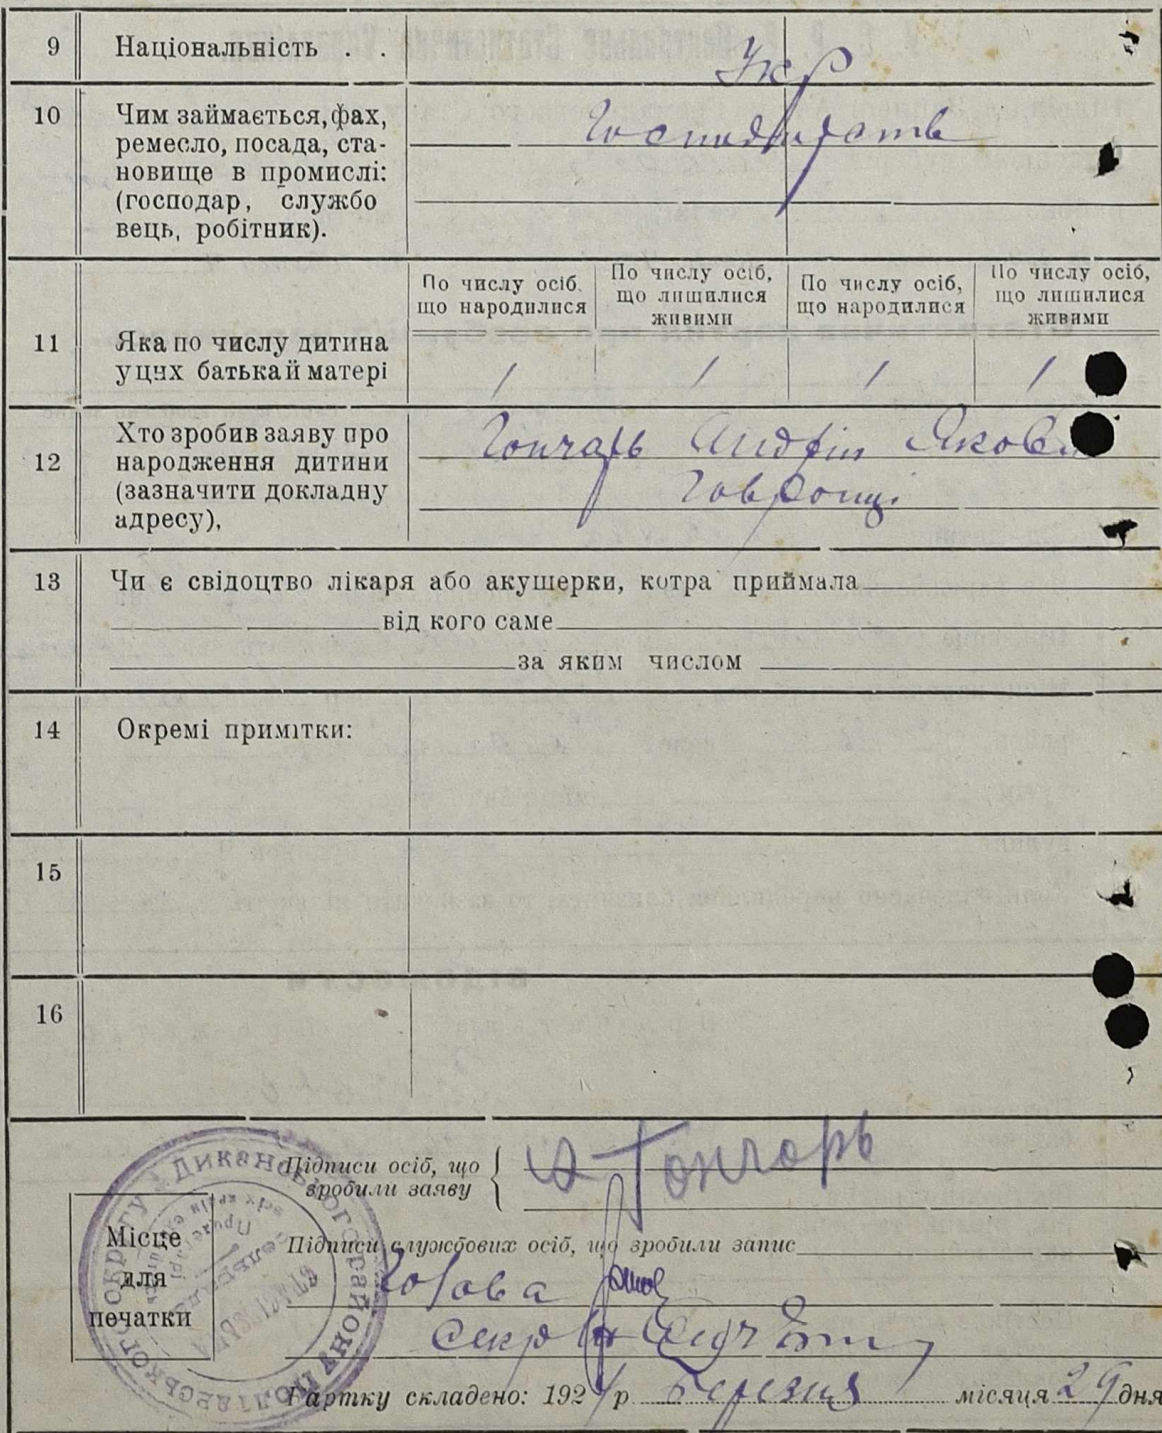 9 Національність . . Укр
10 Чим займається, фах,
ремесло, посада, ста-
новище в промислі:
(господар, службо
вець, робітник).
По числу осіб, що народилися
По числу осіб, що лишилися живими
По числу осіб, що народилися
По числу осіб, що лишилися живими
11 Яка по числу дитина
у цих батька й матері
1 1 1 1
12 Хто зробив заяву про
народження дитини
(зазначити докладну
адресу),
Гончарь Андрій Яковл
Гавронці
13 Чи є свідоцтво лікаря або акушерки, котра приймала
від кого саме
за яким числом
14 Окремі примітки:
15
16
Підписи осіб, що
зробили заяву
А Гончарь
Місце
для
печатки
Диканського району Полтавського округу
Підписи службових осіб, що зробили запис
Голова
Секр
Картку складено: 192 р. Березня місяця 29 дня